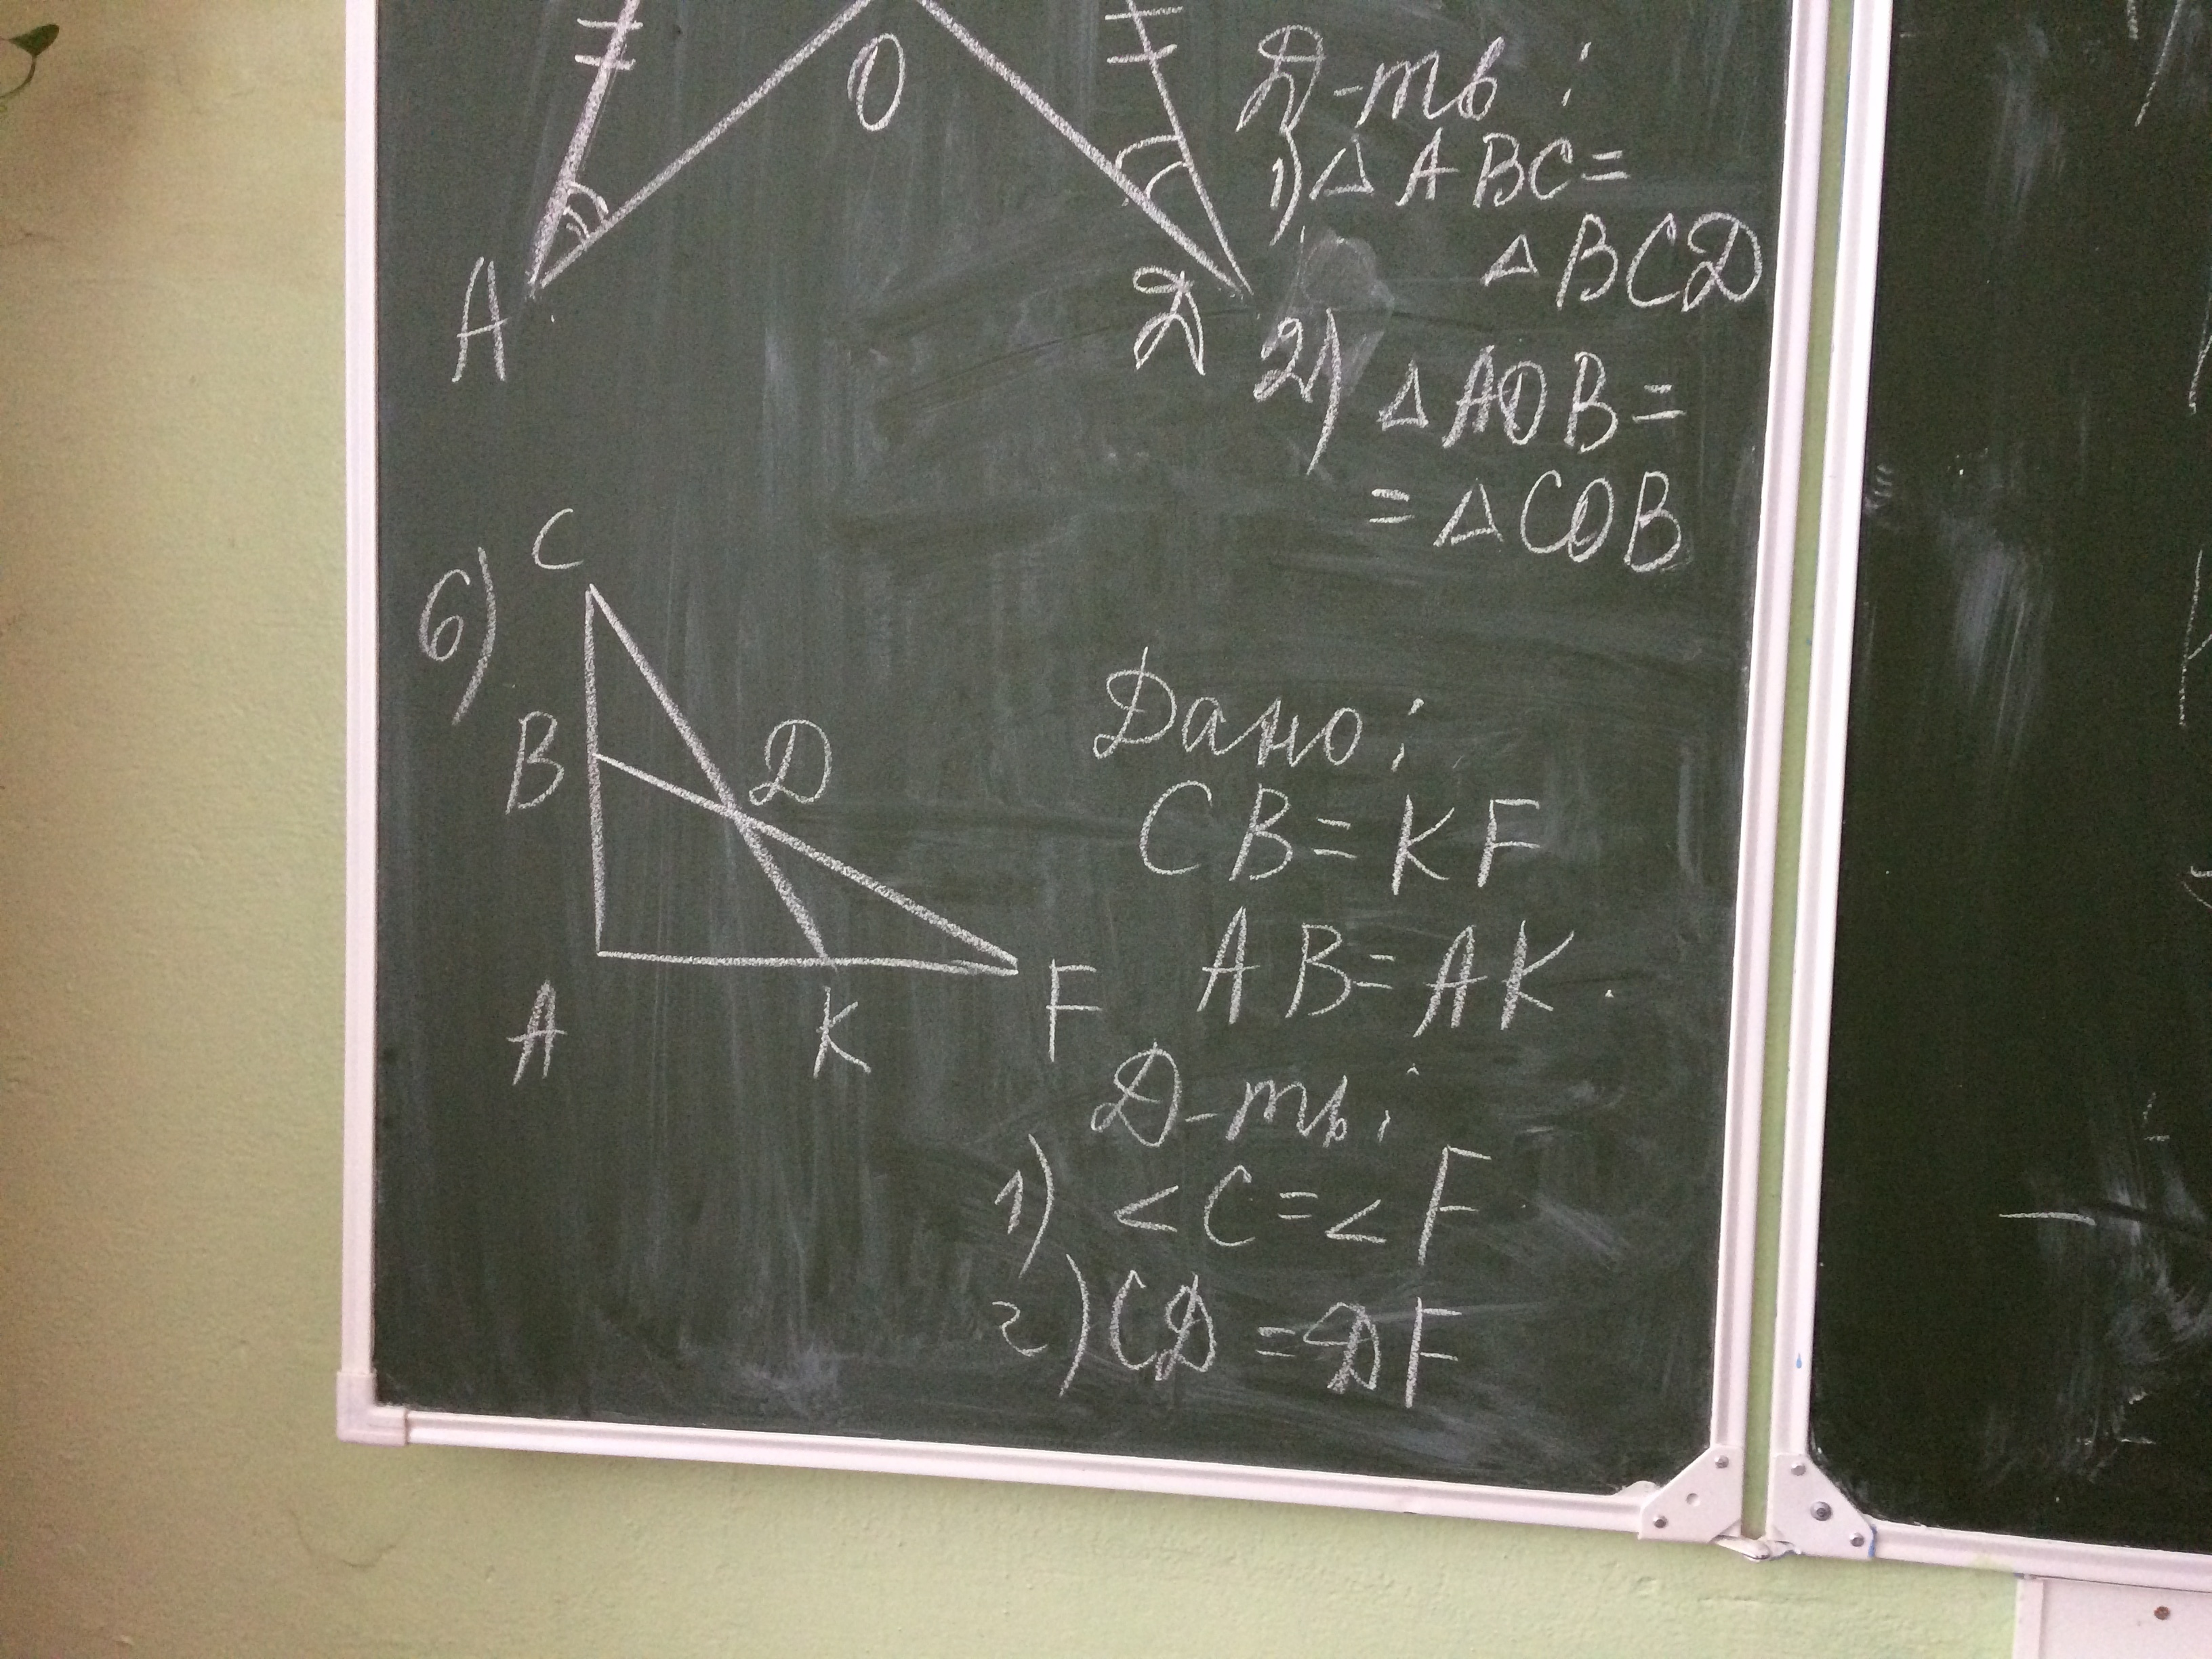 O
A
D
Д-ть:
1) △ ABC =
△ BCD
2) △ AOB =
= △ COB
6)
C
B
D
A
K
F
Дано:
CB = KF
AB = AK.
Д-ть:
1) < C = < F
2) CD = DF